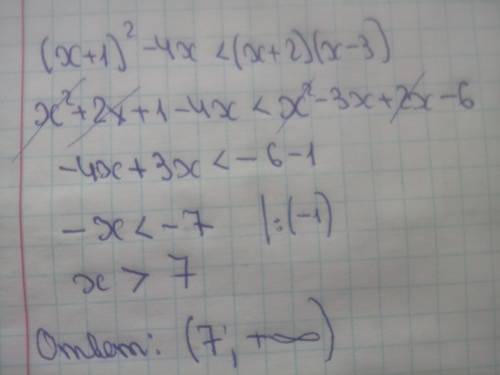 (x+1)² -4x < (x+2)(x-3)
x²+2x+1-4x < x²-3x+2x-6
-4x+3x < -6-1
-x < -7 |:(-1)
x > 7
Ответ: (7; +∞)